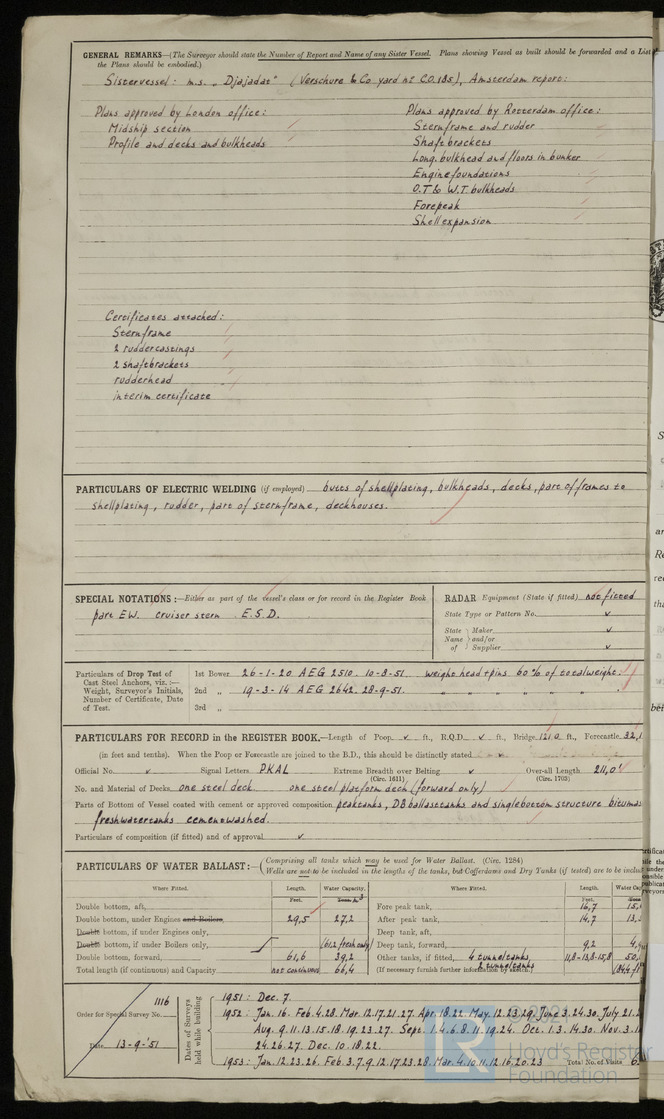 GENERAL REMARKS—(The Surveyor should state the Number of Report and Name of any Sister Vessel. Plans showing Vessel as built should be forwarded and a List
the Plans should be embodied.)
Sistervessel: m.s. „Djajadat" (Verschure & Co yard no C.O. 185), Amsterdam report:
Plans approved by London office:
Midship section
Profile and decks and bulkheads
Plans approved by Rotterdam office:
Sternframe and rudder
Shaftbrackets
Long. bulkhead and floors in bunker
Enginefoundations
O.T. & W.T. bulkheads
Forepeak
Shellexpansion
Certificates attached:
Sternframe
2 ruddercastings
2 shaftbrackets
rudderhead
interim certificate
PARTICULARS OF ELECTRIC WELDING (if employed) butts of shellplating, bulkheads, decks, part of frames to
shellplating, rudder, part of sternframe, deckhouses.
SPECIAL NOTATIONS:—Either as part of the vessel's class or for record in the Register Book
part EW. cruiser stern E.S.D.
RADAR Equipment (State if fitted) not fitted
State Type or Pattern No.
State Name of Maker and/or Supplier
Particulars of Drop Test of Cast Steel Anchors, viz.:—Weight, Surveyor's Initials, Number of Certificate, Date of Test.
1st Bower 26-1-20 AEG 2510. 10-8-51. weight head + pins 60% of total weight.
2nd „ 19-3-14 AEG 2642. 28-9-51. „ „ „ „ „ „
3rd „
PARTICULARS FOR RECORD in the REGISTER BOOK.—Length of Poop ft., R.Q.D. ft., Bridge 121.0 ft., Forecastle 32,1
(in feet and tenths). When the Poop or Forecastle are joined to the B.D., this should be distinctly stated
Official No. Signal Letters PKAL Extreme Breadth over Belting (Circ. 1611) Over-all Length (Circ. 1703) 211,0
No. and Material of Decks one steel deck. one steel platform deck (forward only)
Parts of Bottom of Vessel coated with cement or approved composition peaktanks, DBballasttanks and singlebottom structure bitumas
freshwatertanks cementwashed.
Particulars of composition (if fitted) and of approval
PARTICULARS OF WATER BALLAST:—(Comprising all tanks which may be used for Water Ballast. (Circ. 1284)
Wells are not to be included in the lengths of the tanks, but Cofferdams and Dry Tanks (if tested) are to be includ
Where Fitted. Length. Feet. Water Capacity.
Double bottom, aft,
Double bottom, under Engines and Boilers, 29,5 27,2
Double bottom, if under Engines only,
Double bottom, if under Boilers only, (61,2 fresh only)
Double bottom, forward, 61,6 39,2
Total length (if continuous) and Capacity not continuous 66,4
Where Fitted. Length. Feet.
Fore peak tank, 16,7
After peak tank, 14,7
Deep tank, aft,
Deep tank, forward, 9,2
Other tanks, if fitted, 4 tunneltanks 11,8-13,8-15,8
2 tunneltanks
(If necessary furnish further information by sketch.)
1116
Order for Special Survey No.
Date 13-9-'51
Dates of Surveys held while building
1951: Dec. 7.
1952: Jan. 16. Feb. 4.28. Mar. 12.17.21.27. Apr. 18.22. May. 12.23.29. June. 3.24.30. July 21.2
Aug. 9.11.13.15.18.19.23.27. Sept. 1.4.6.8.11.19.24. Oct. 1.3.14.30. Nov. 3.11
24.26.27. Dec. 10.18.22.
1953: Jan. 12.23.26. Feb. 3.7.9.12.17.23.28. Mar. 4.10.11.12.16.20.23
Total No. of Visits 6
© 2021
Lloyd's Register
Foundation
LR